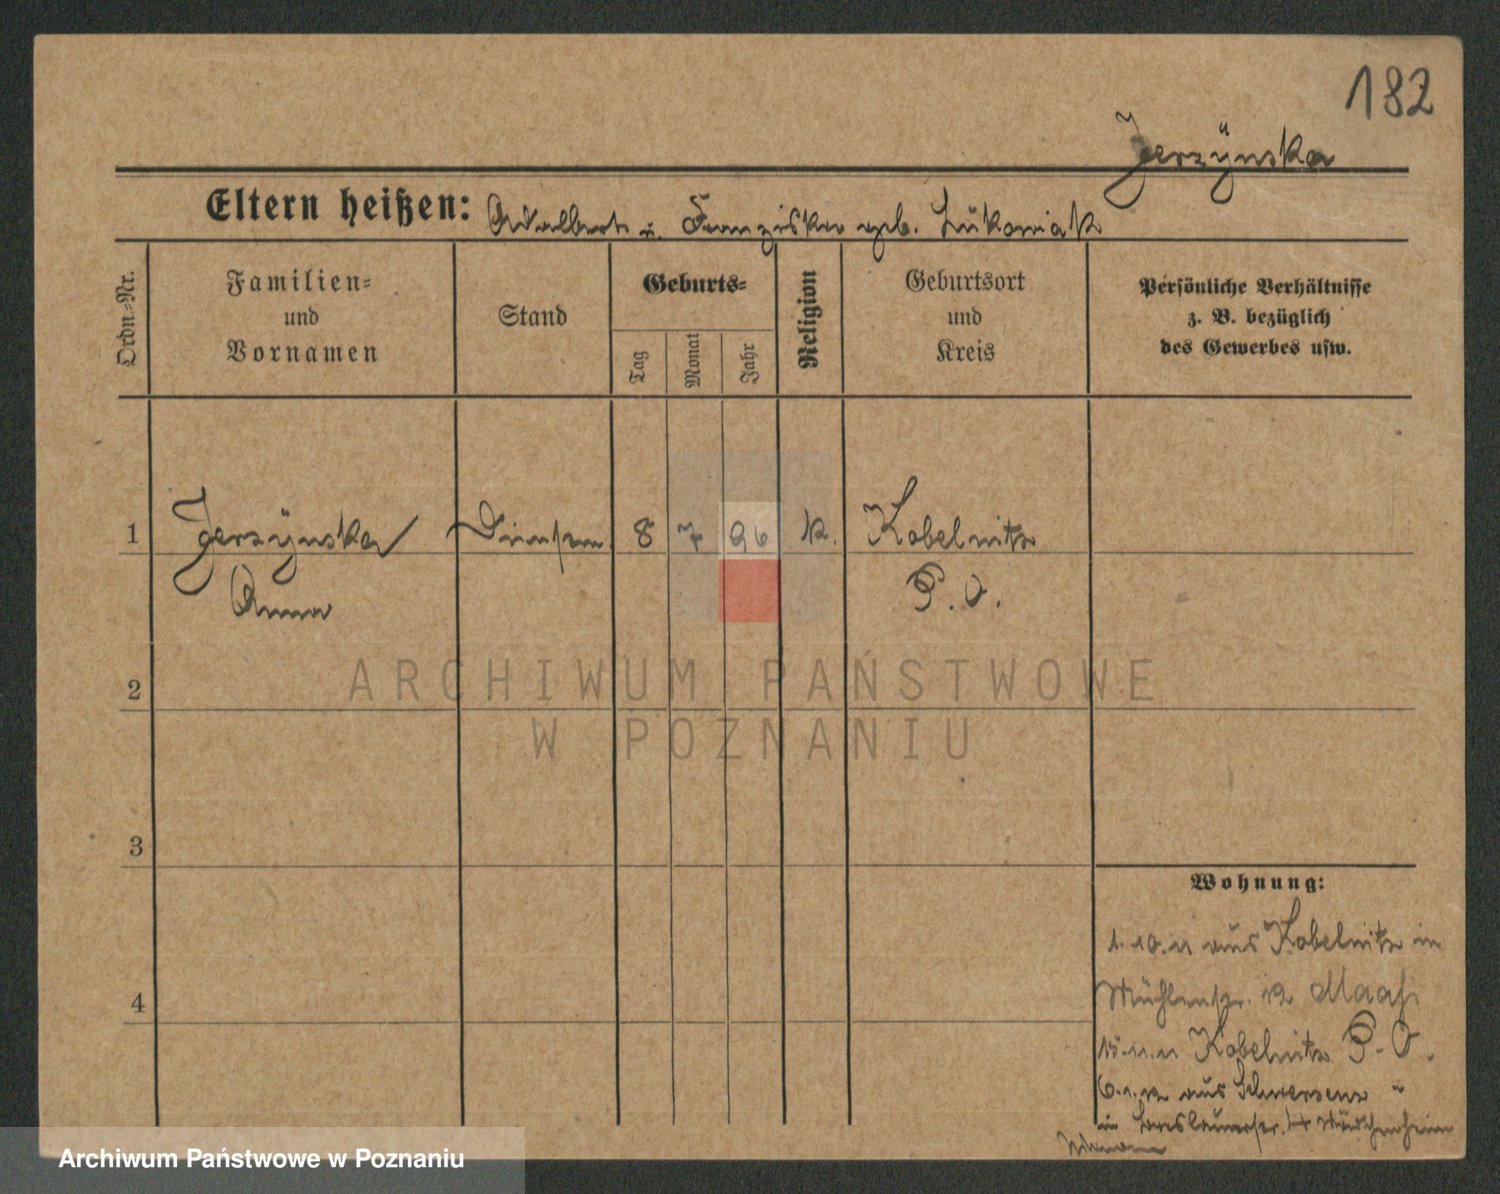 182
Jerzÿnska
Eltern heißen: Adalbert u. Franziska geb. Lukowiak
Ordn.-Nr.
Familien-
und
Vornamen
Stand
Geburts-
Tag
Monat
Jahr
Religion
Geburtsort
und
Kreis
Persönliche Verhältnisse
z. B. bezüglich
des Gewerbes usw.
1 Jerzÿnska 8 7 96 k. Kobelnitz
Anna P. O.
ARCHIWUM PAŃSTWOWE
2
W POZNANIU
3
Wohnung:
1.10.11 aus Kobelnitz in
4 Mühlenstr. 12
15.11.11 Kobelnitz P. O.
6.1.12 aus Schwersenz
in Breslauerstr.
Archiwum Państwowe w Poznaniu